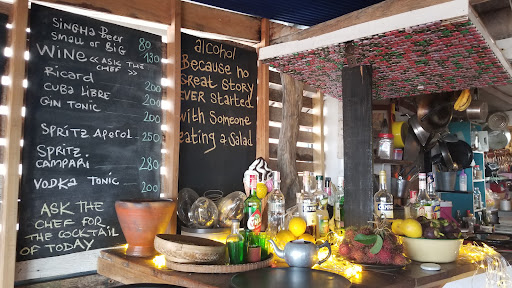 Singha Beer 80
Small or Big 130
Wine << Ask the
chef >>
Ricard 200
Cuba Libre 200
Gin Tonic 200
Spritz Aperol 250
Spritz
Campari 280
Vodka Tonic 200
Ask the
chef for
the cocktail
of today
alcohol
Because no
great story
ever started
with someone
eating a salad